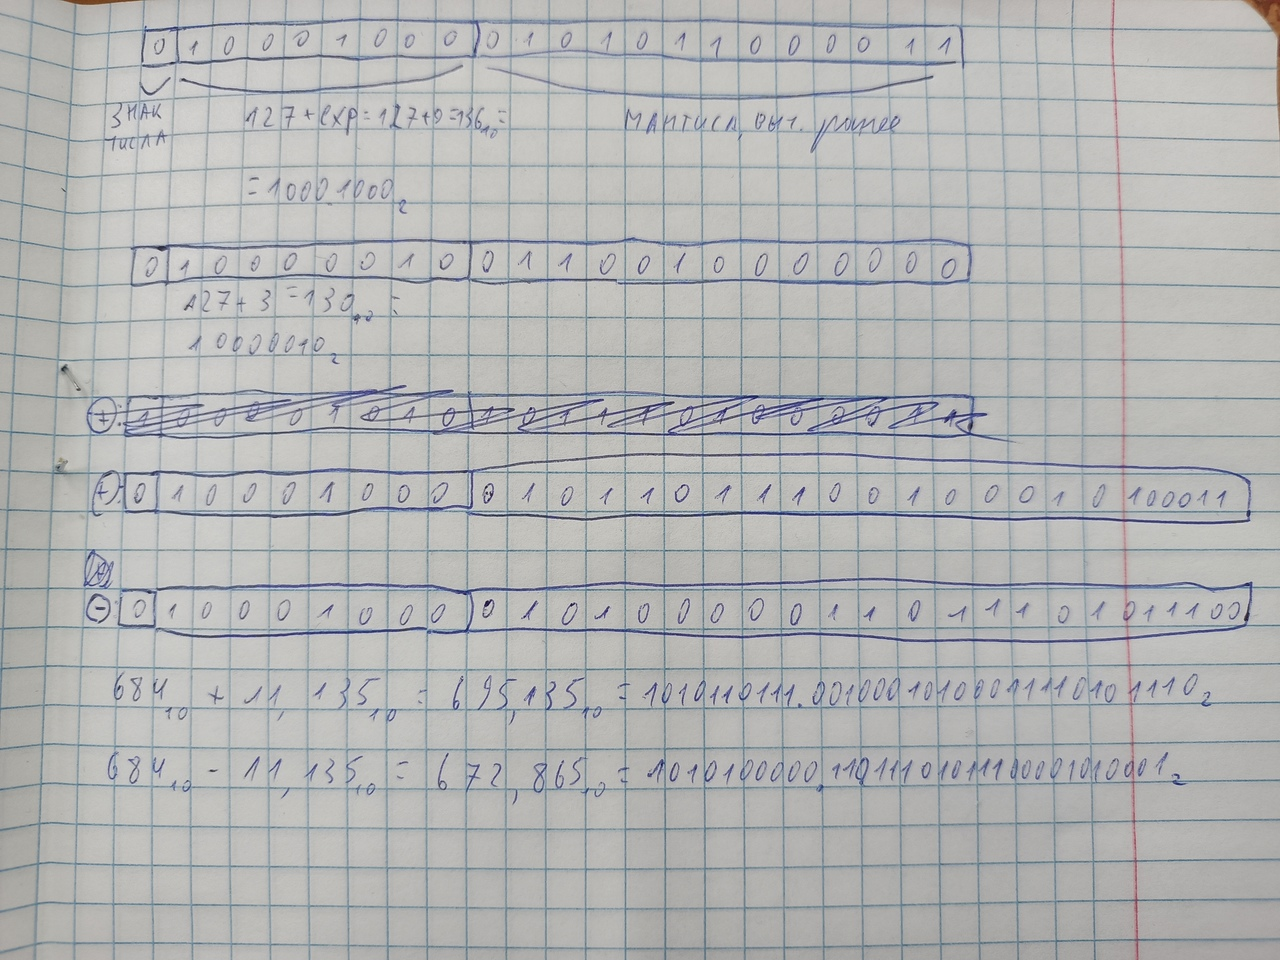 0 1 0 0 0 1 0 0 0 0 1 0 1 0 1 1 0 0 0 0 1 1
ЗНАК 127+exp=127+9=136₁₀= МАНТИСА, выч. ранее
ЧИСЛА
=1000 1000₂
0 1 0 0 0 0 0 1 0 0 1 1 0 0 1 0 0 0 0 0 0 0
127+3=130₁₀=
10000010₂
+: 0 1 0 0 0 1 0 0 0 0 1 0 1 1 0 1 1 1 0 0 1 0 0 0 1 0 100011
-: 0 1 0 0 0 1 0 0 0 0 1 0 1 0 0 0 0 0 1 1 0 1 1 1 0 1 011100
684₁₀ + 11,135₁₀ = 695,135₁₀ = 1010110111.00100010100011110101110₂
684₁₀ - 11,135₁₀ = 672,865₁₀ = 1010100000,11011101011100001010001₂